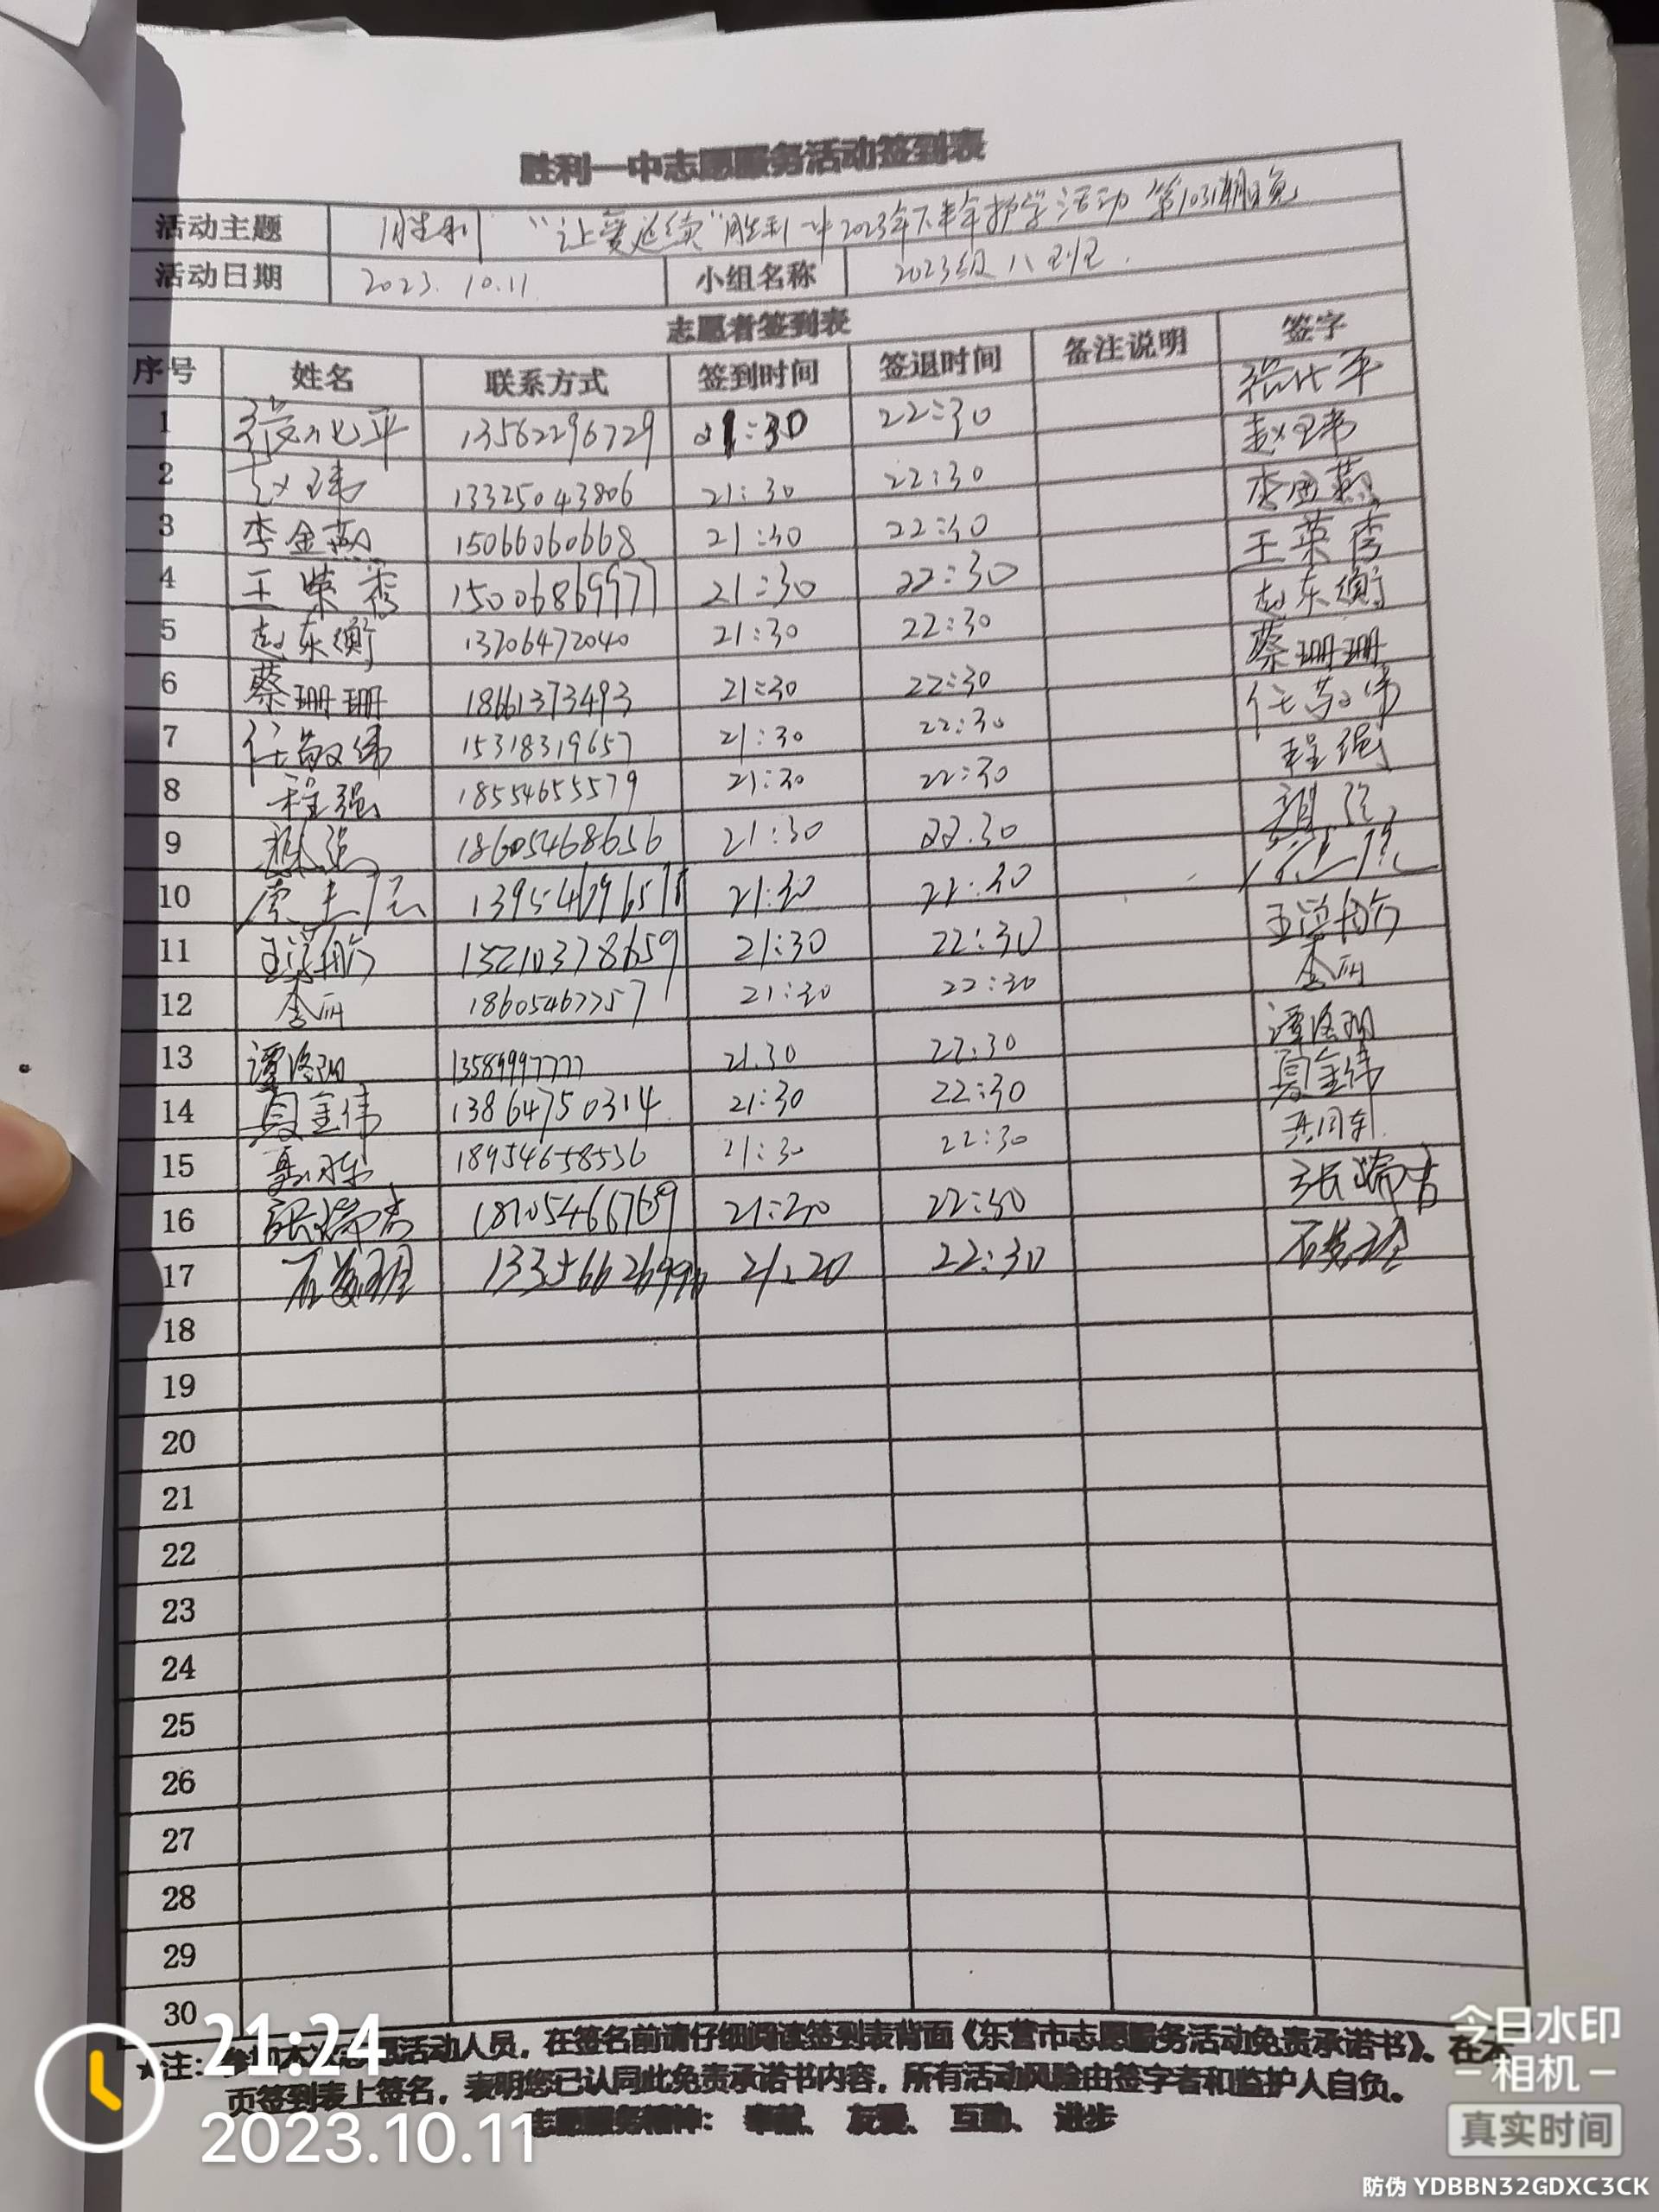 胜利一中志愿服务活动签到表
活动主题 胜利 “让爱延续”胜利一中2023年下半年护学活动 第1031期
活动日期 2023.10.11. 小组名称 2023级八班.
志愿者签到表
序号 姓名 联系方式 签到时间 签退时间 备注说明 签字
1 13562296729 21:30 22:30
2 赵玮 13325043806 21:30 22:30 赵玮
3 李金燕 15066060668 21:30 22:30
4 王荣秀 15006869977 21:30 22:30 王荣秀
5 赵东衡 13706472040 21:30 22:30 赵东衡
6 蔡珊珊 18661373493 21:30 22:30 蔡珊珊
7 任敬伟 15318319657 21:30 22:30 任敬伟
8 程强 18554655579 21:30 22:30 程强
9 18605468656 21:30 22:30
10 21:30 22:30
11 15210378659 21:30 22:30
12 李丽 18605467757 21:30 22:30 李丽
13 21.30 22:30
14 夏金伟 13864750314 21:30 22:30 夏金伟
15 18954658536 21:30 22:30
16 张瑞吉 18705466769 21:30 22:30 张瑞吉
17 21:20 22:30
18
19
20
21
22
23
24
25
26
27
28
29
30
★注:参加本次志愿活动人员,在签名前请仔细阅读签到表背面《东营市志愿服务活动免责承诺书》。在本
页签到表上签名,表明您已认同此免责承诺书内容,所有活动风险由签字者和监护人自负。
志愿服务精神: 奉献、 友爱、 互助、 进步
21:24
2023.10.11
今日水印
相机
真实时间
防伪 YDBBN32GDXC3CK